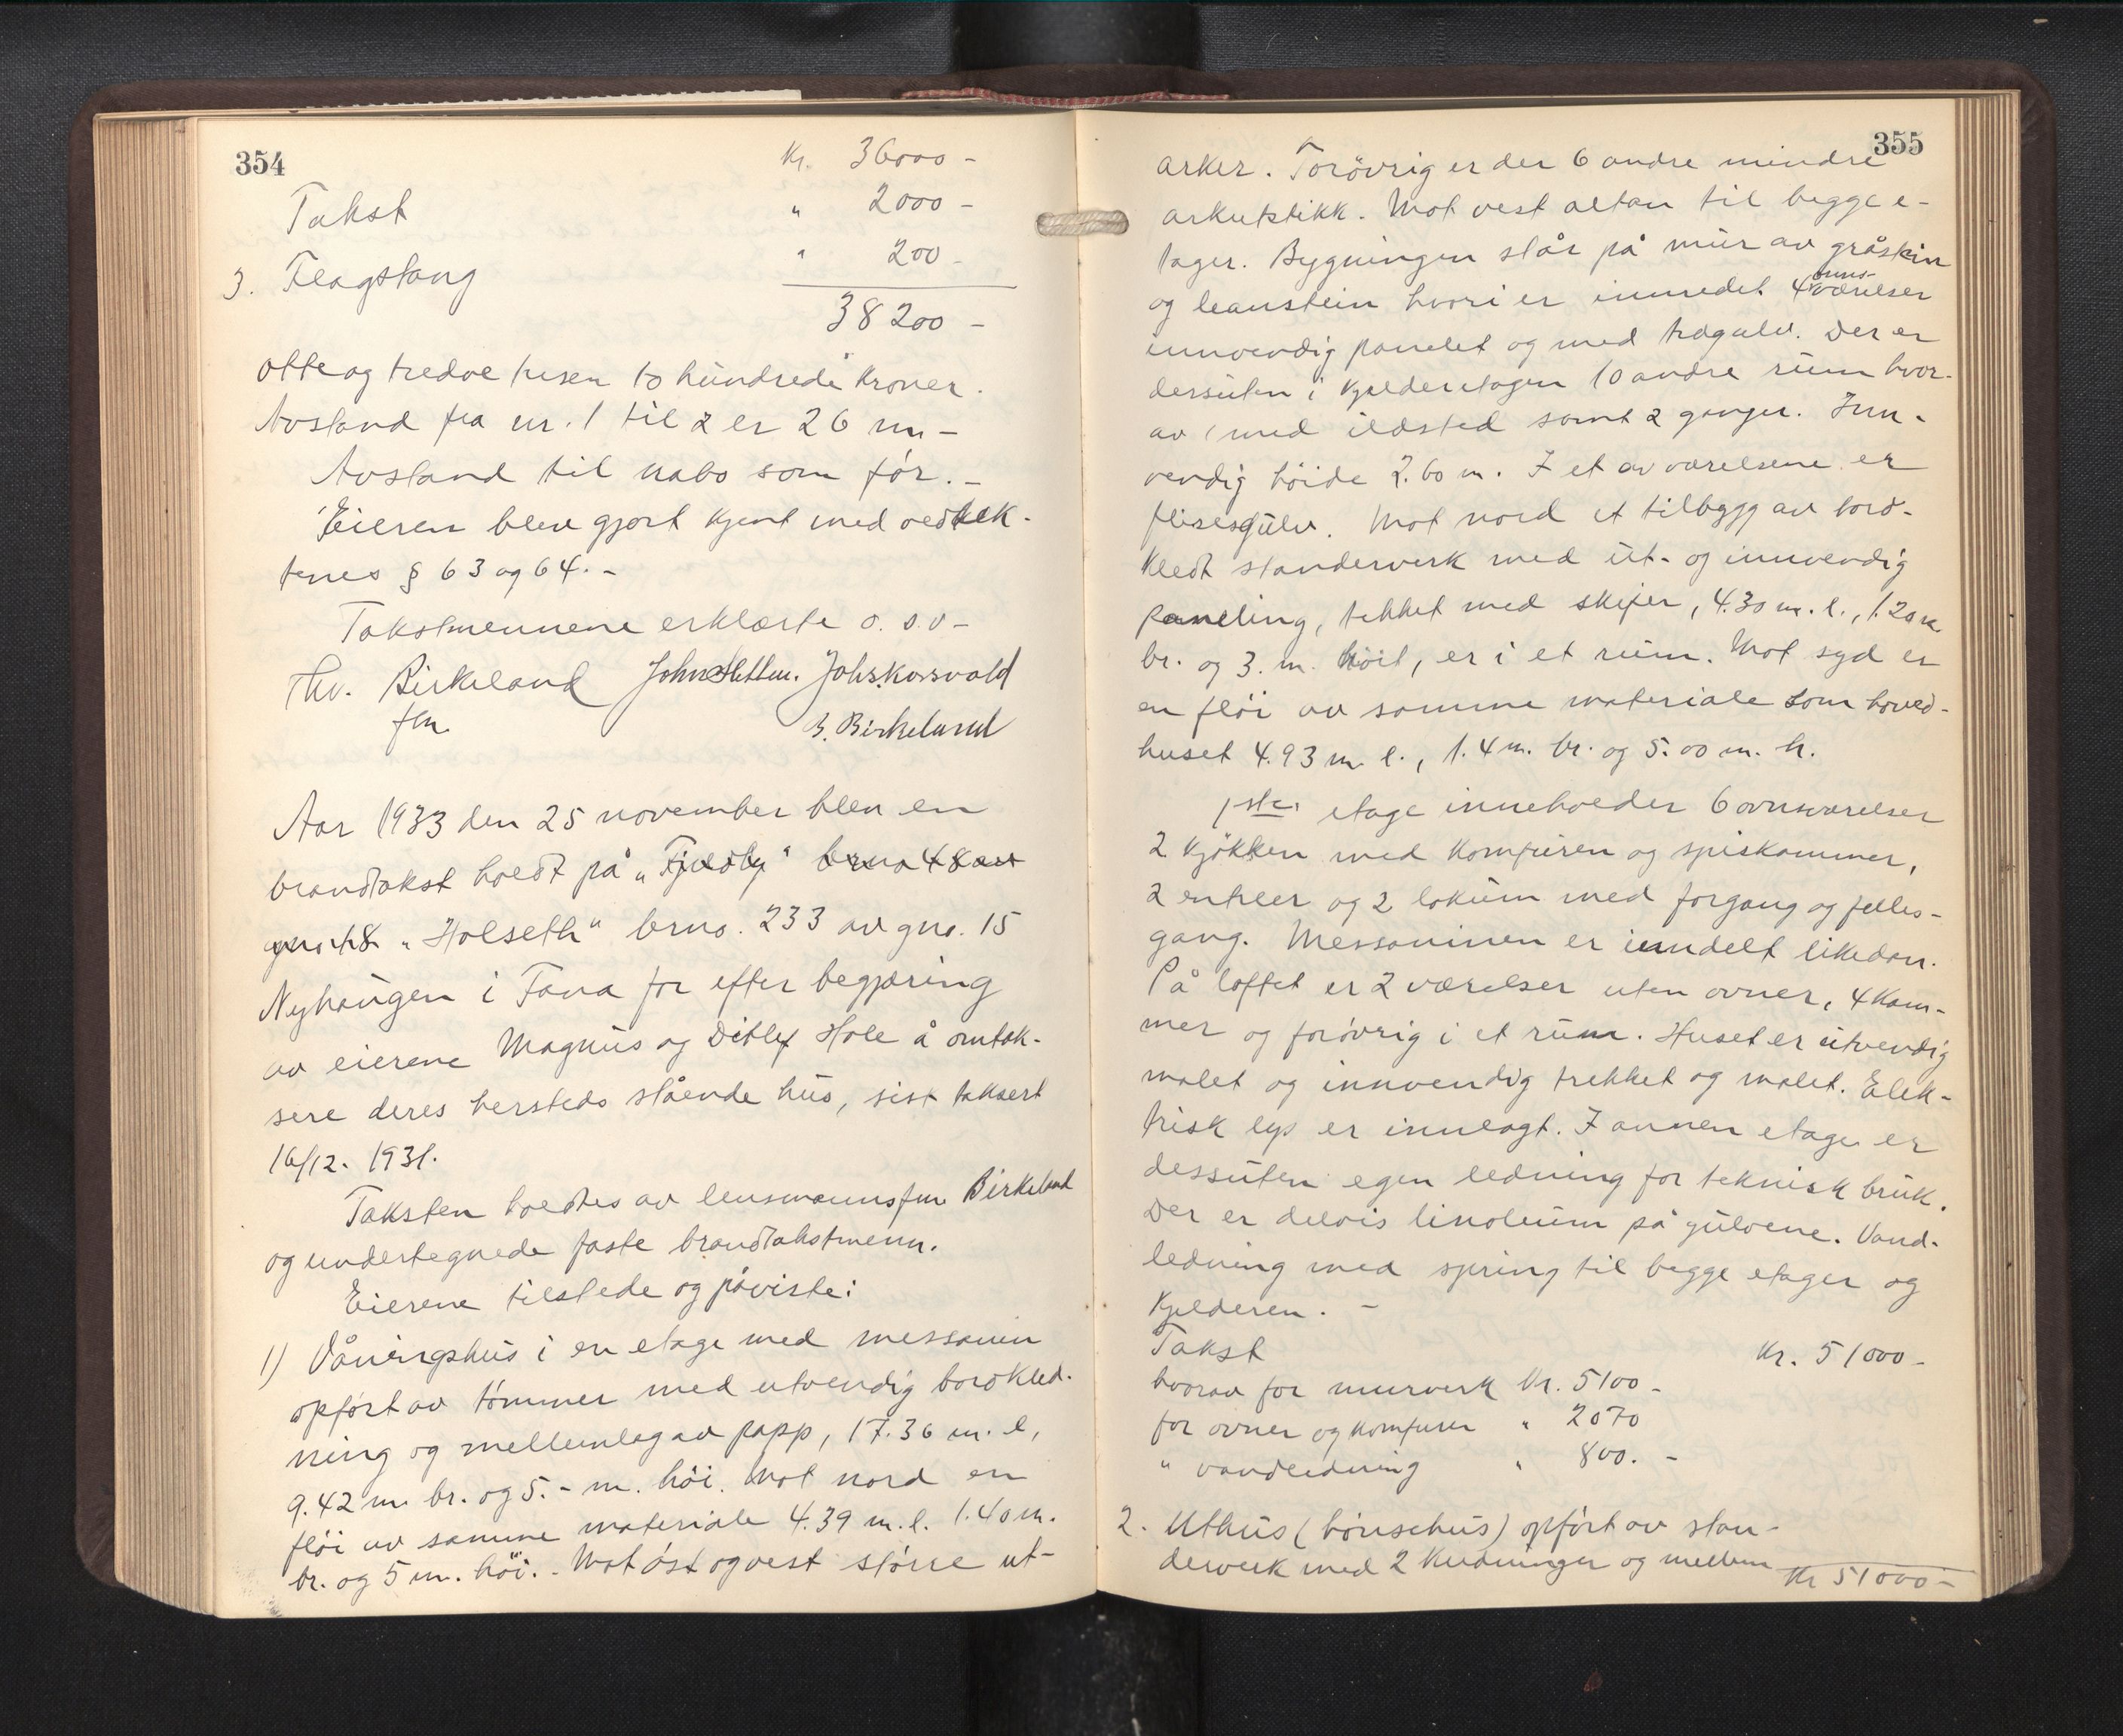 354
Kr. 36000 -
Takst " 2000 -
3. Flagstang " 200 -
38200 -
otte og tredve tusen to hundrede kroner.
Avstand fra nr. 1 til 2 er 26 m -
Avstand til nabo som før. -
Eieren blev gjort kjent med vedtek-
tenes § 63 og 64. -
Takstmennene erklærte o.s.v -
Thv. Birkeland John Sletten. Johs. Korsvold
fm. B. Birkeland
Aar 1933 den 25 november blev en
brandtakst holdt på "Fjeldby" brno 48 av
gno 48 "Holseth" brno. 233 av gno. 15
Nyhaugen i Fana for efter begjæring
av eierene Magnus og Ditlef Hole å omtak-
sere deres hersteds stående hus, sist taksert
16/12. 1931.
Taksten holdtes av lensmannsfm Birkeland
og undertegnede faste brandtakstmenn.
Eierene tilstede og påviste:
1) Våningshus i en etage med messanin
opført av tømmer med utvendig bordkled-
ning og mellemlag av papp, 17.36 m. l,
9.42 m br. og 5.- m. høi. Mot nord en
fløi av samme materiale 4.39 m. l. 1.40 m.
br. og 5 m. høi. - Mot øst og vest større ut-
355
arker. Forøvrig er der 6 andre mindre
arkutstikk. Mot vest altan til begge e-
tager. Bygningen står på mur av gråstein
og leanstein hvori er innredet 4 ovns-værelser
innvendig panelet og med tregulv. Der er
dersuten i kjelderetagen 10 andre rum hvor-
av 1 med ildsted samt 2 ganger. Inn-
vendig høide 2.60 m. I et av værelsene er
flisesgulv. Mot nord et tilbygg av bord-
kledt standerverk med ut- og innvendig
paneling, tekket med skifer, 4.30 m. l., 1.20 m
br. og 3. m. høit, er i et rum. Mot syd er
en fløi av samme materiale som hoved-
huset 4.93 m l., 1.4 m. br. og 5.00 m. h.
1ste. etage inneholder 6 ovnsværelser
2 kjøkken med komfuren og spiskammer,
2 entreer og 2 lokum med forgang og felles-
gang. Messaninen er inndelt likedan.
På loftet er 2 værelser uten ovner, 4 kam-
mer og forøvrig i et rum. Huset er utvendig
malet og innvendig trekket og malet. Elek-
trisk lys er innlagt. I annen etage er
dessuten egen ledning for teknisk bruk.
Der er delvis linoleum på gulvene. Vand-
ledning med spring til begge etager og
kjelderen. -
Takst Kr. 51000 -
hvorav for murverk Kr. 5100 -
for ovner og komfurer " 2070
" vandledning " 800. -
2. Uthus (hønsehus) opført av stan-
derverk med 2 kledninger og mellem
Kr 51000 -